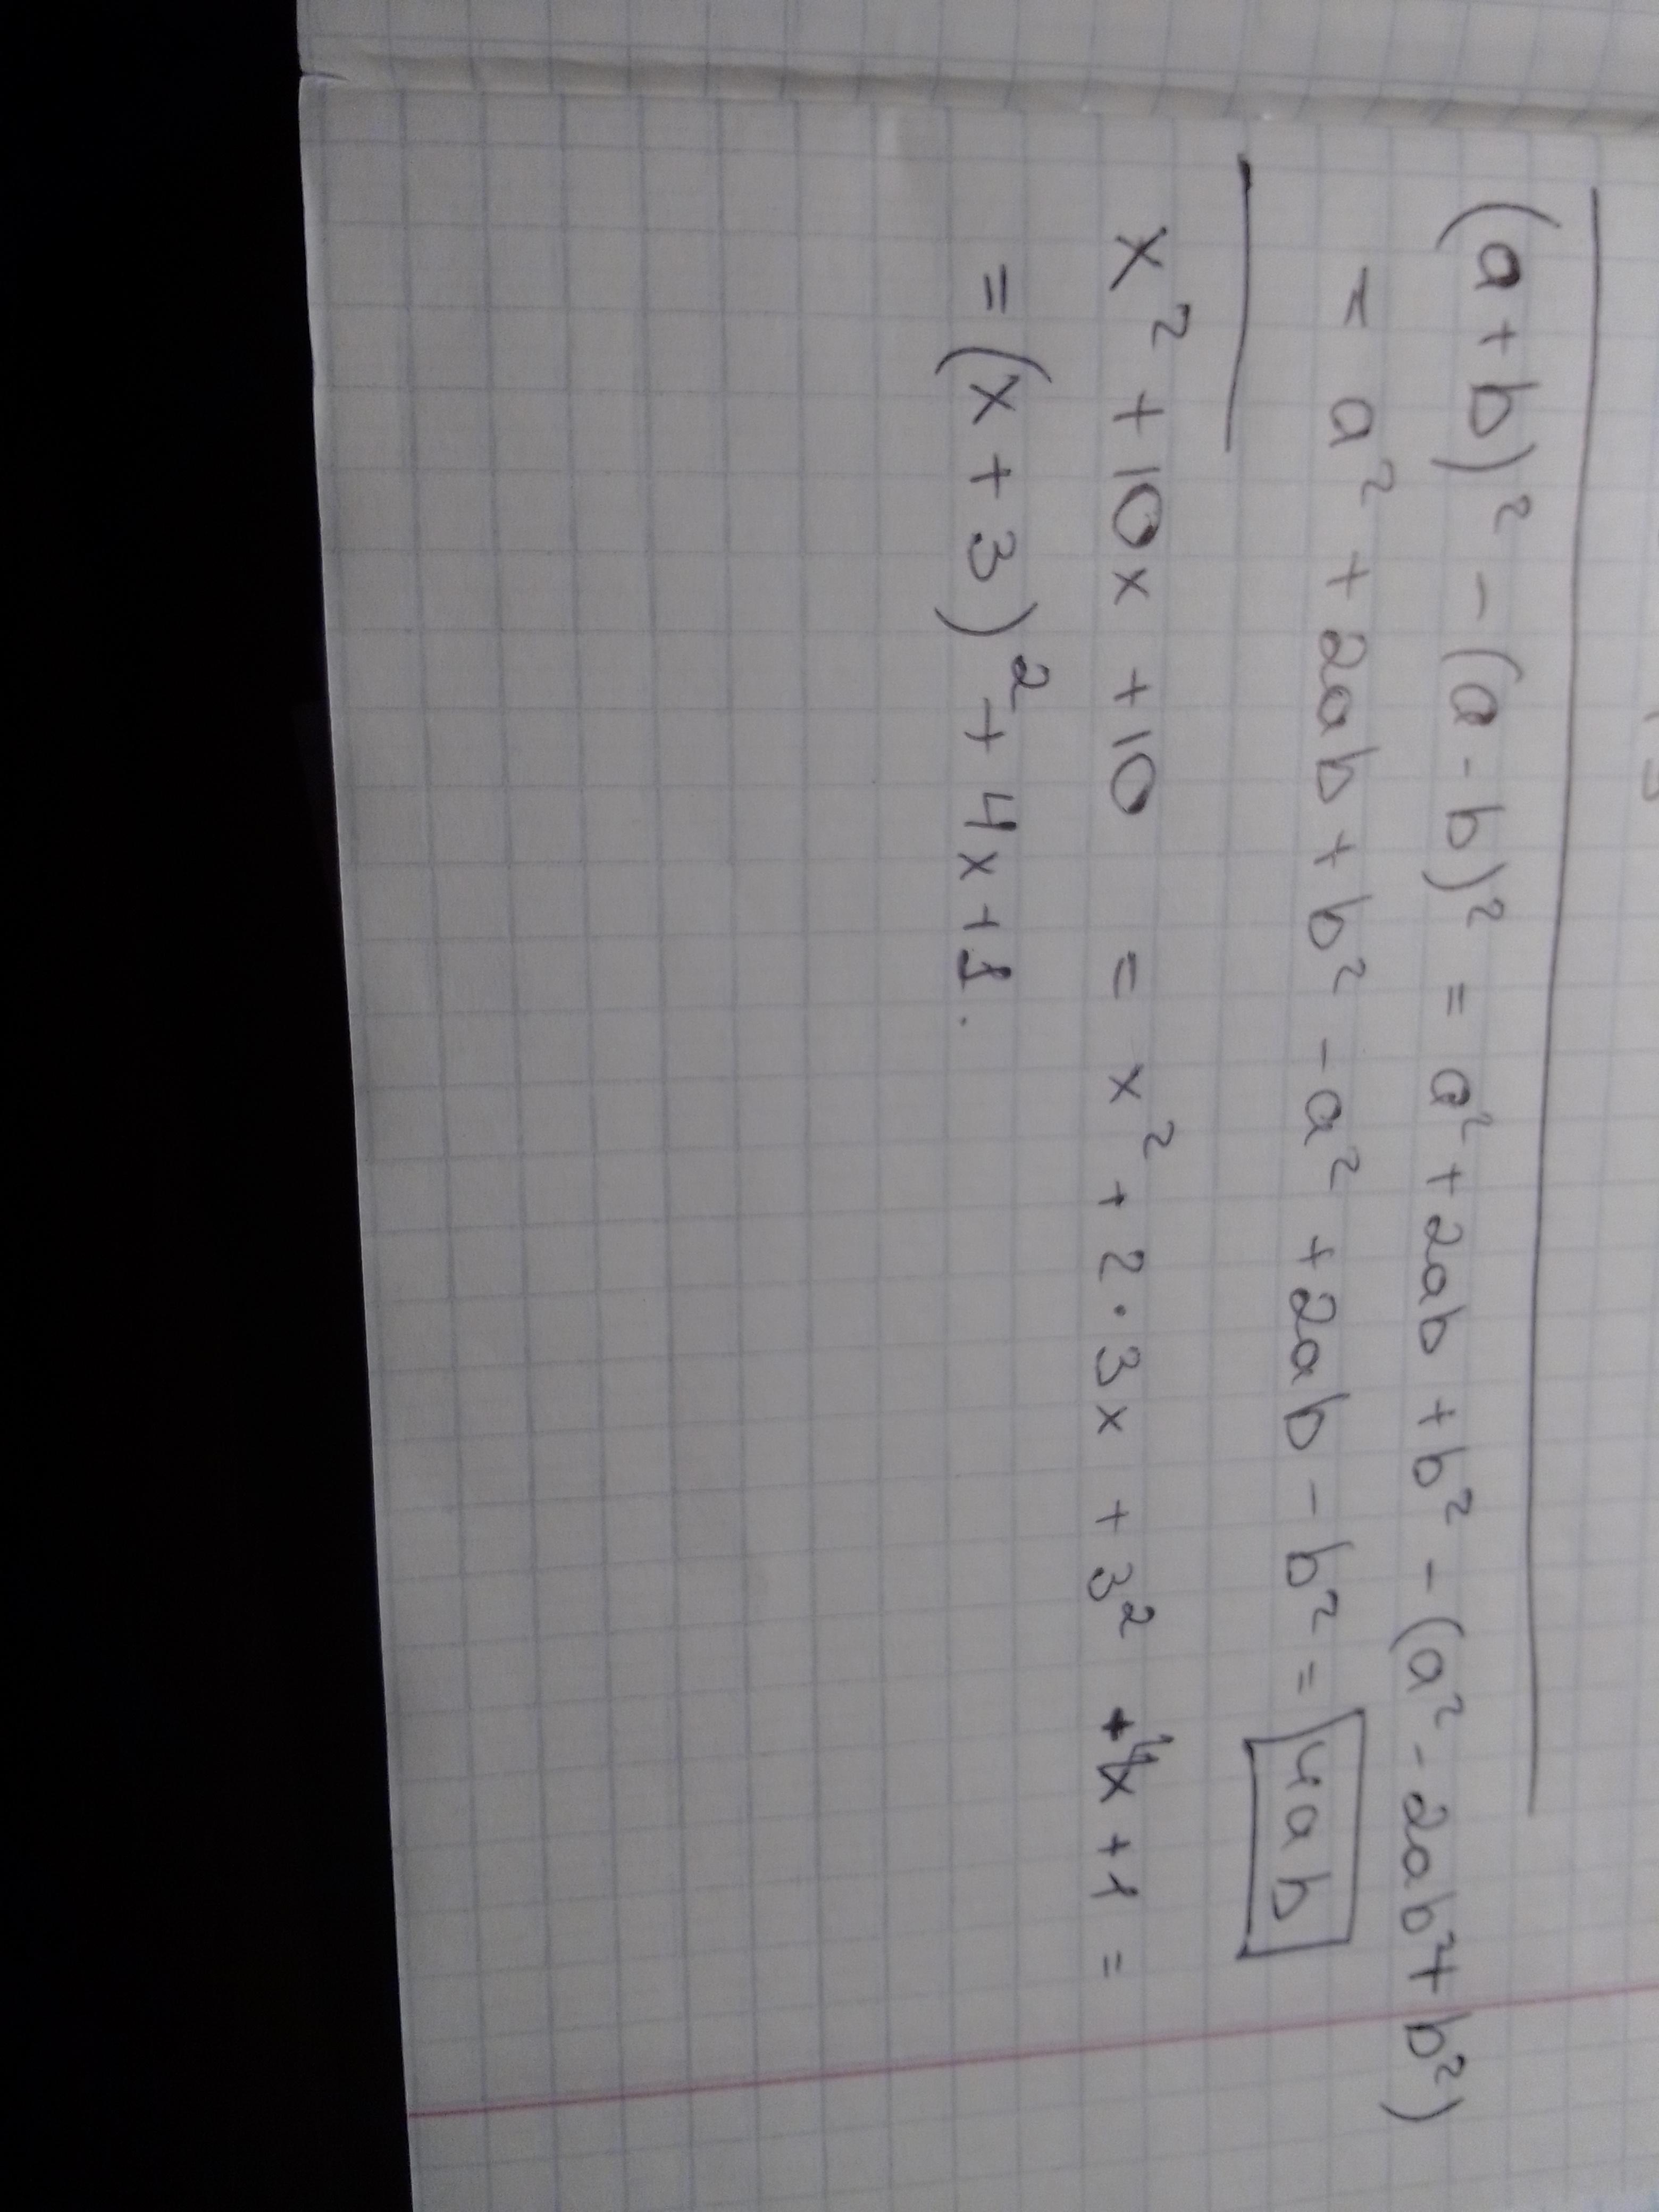 (a+b)² - (a-b)² = a² + 2ab + b² - (a² - 2ab² + b²)
= a² + 2ab + b² - a² + 2ab - b² = 4ab
x² + 10x + 10 = x² + 2·3x + 3² + 4x + 1 =
= (x + 3)² + 4x + 1.